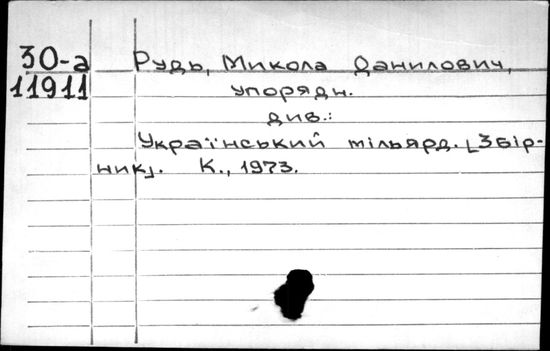 30-а Рудь, Микола Данилович,
11911 упорядн.
див.:
Український мільярд. [Збір-
ник]. К., 1973.